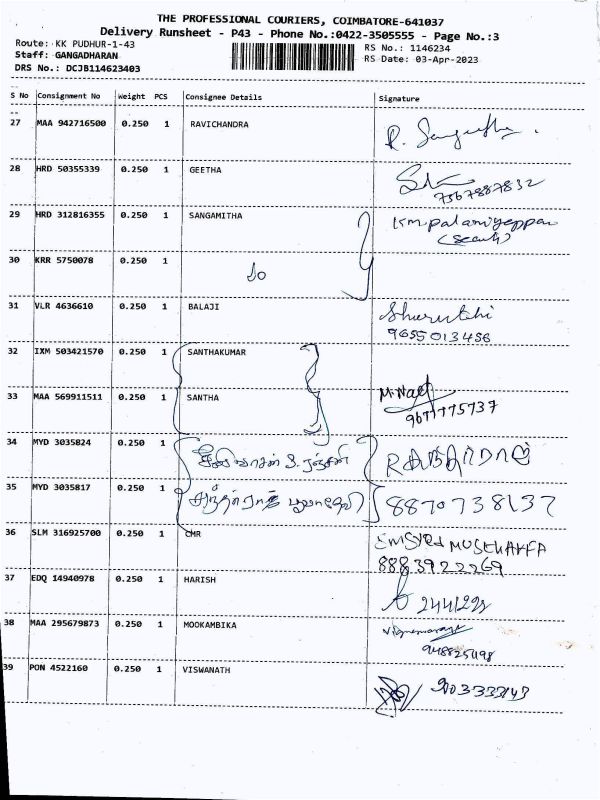 THE PROFESSIONAL COURIERS, COIMBATORE-641037
Delivery Runsheet - P43 - Phone No.:0422-3505555 - Page No.:3
Route: KK PUDHUR-1-43 RS No.: 1146234
Staff: GANGADHARAN RS Date: 03-Apr-2023
DRS No.: DCJB114623403
S No Consignment No Weight PCS Consignee Details Signature
27 MAA 942716500 0.250 1 RAVICHANDRA R.
28 HRD 50355339 0.250 1 GEETHA
7367887832
29 HRD 312816355 0.250 1 SANGAMITHA
30 KRR 5750078 0.250 1
31 VLR 4636610 0.250 1 BALAJI Shurutchi
9655013456
32 IXM 503421570 0.250 1 SANTHAKUMAR
33 MAA 569911511 0.250 1 SANTHA
9677775737
34 MYD 3035824 0.250 1
35 MYD 3035817 0.250 1 8870738137
36 SLM 316925700 0.250 1 CMR
8883922269
37 EDQ 14940978 0.250 1 HARISH
38 MAA 295679873 0.250 1 MOOKAMBIKA
39 PON 4522160 0.250 1 VISWANATH